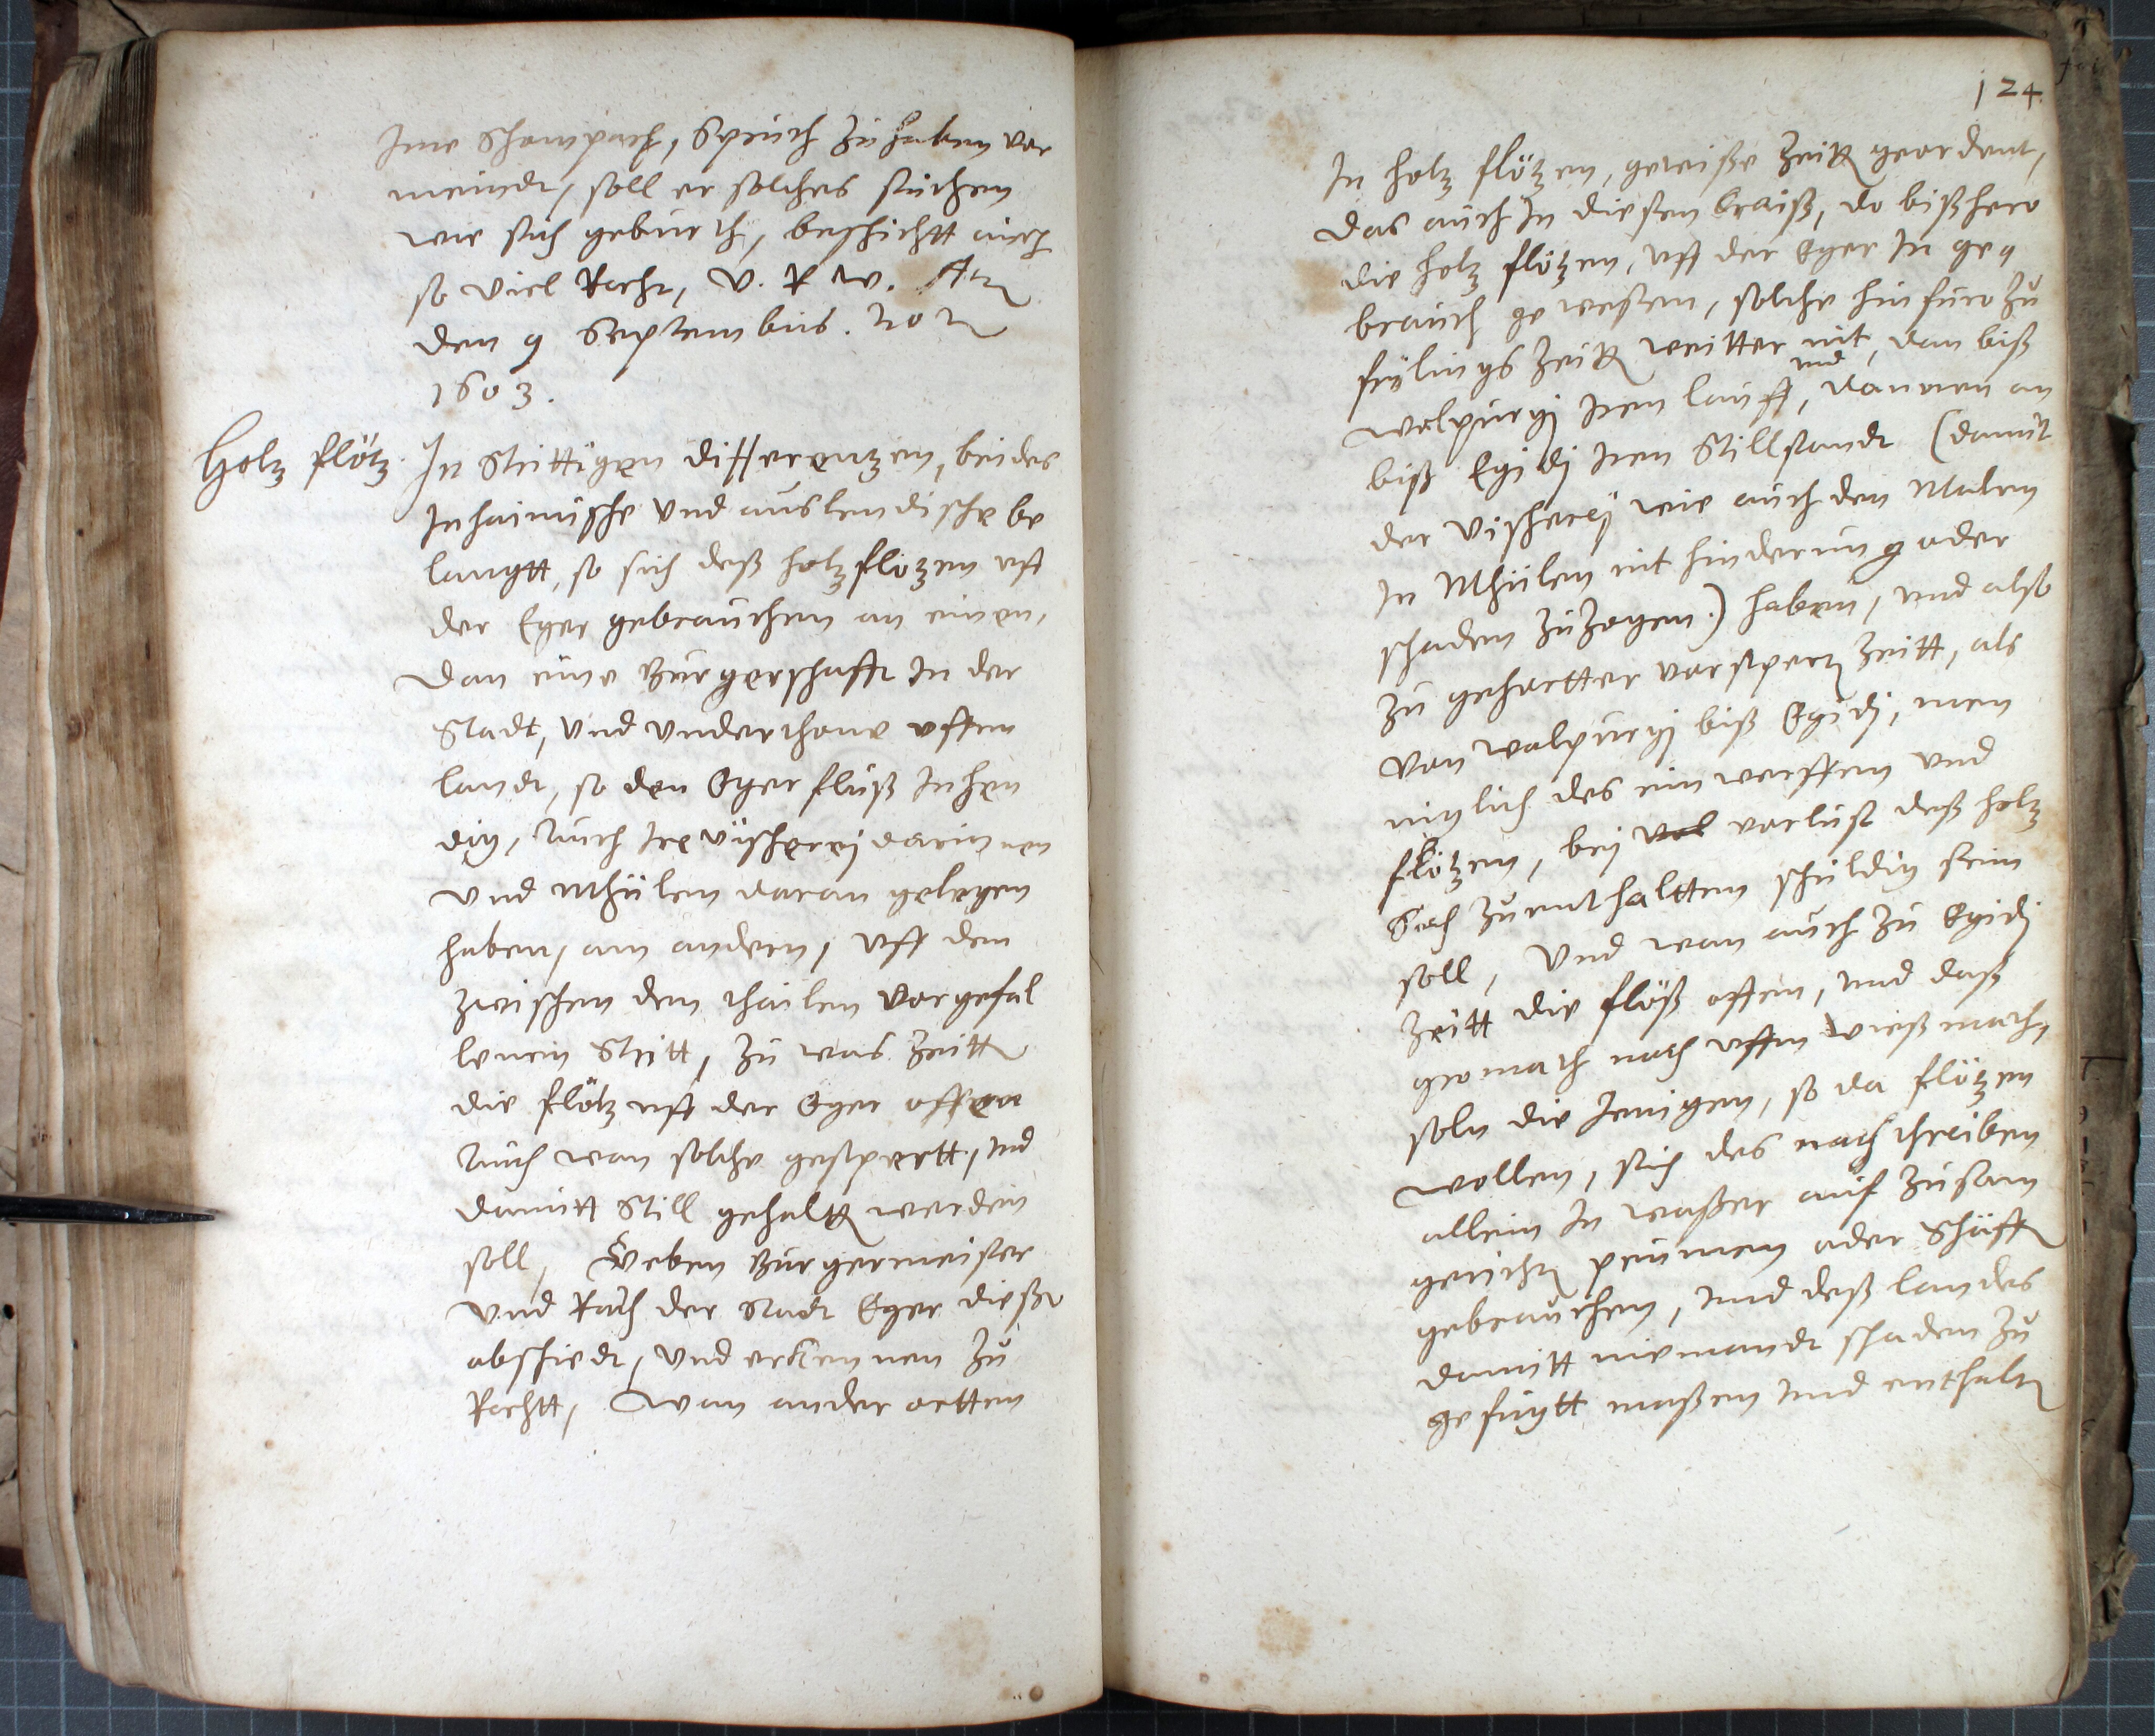 Ime Schampach, Spruch zu haben ver
meindt, soll er solches suchen
wie sich geburth, beschichtt auch
so viel Recht, V. R W. Act
den 9 Septembris. Ao
1603.
Holz flötz. In Strittigen differentzen, beides
Inhaimische und auslendische be
langtt, so sich deß holzflözen uff
der Eger gebrauchen an einen,
dan eine Burgerschafft In der
Stadt, Und Underthane uffm
landt, so den Eger fluß Inhen
dig, Auch Ire vischerej darinnen
Und Mhülen daran gelegen
haben, am andern, Uff den
zwischen den thailen vorgefal
lenen Stritt, zu was Zeitt
die flötz uff der Eger offen
Auch wan solche gespertt, und
damitt Still gehaltt werden
soll, Geben Burgermeister
Und Rath der Stadt Eger diesse
abschiedt, Und erkennen zu
Rechtt, Wan ander ortten
124
In holz flötzen, gewisse Zeitt geordent,
das auch In diesen kraiß, do bißhero
die holz flötzen, uff der Eger In ge
brauch gewessen, solche hinfuro zu
frülings Zeitt weitter nit, dan biß
walpurgj Iren lauff, und dannen an
biß Egidj Iren Stillstandt (damit
der Vischerej wie auch den Malen
In Mhülen nit hinderung oder
schaden zuzogen) haben, und also
zu gehortter versperr Zeitt, als
von walpurgj biß Egidj, men
niglich des einwerffen und
flötzen, bej verlust deß holz
Sich zuenthaltten schuldig sein
soll, Und wan auch zu Egidj
Zeitt die flöß offen, und daß
gromath noch uffm wießmath,
soln die Jenigen, so da flötzen
wollen, sich des nach threiben
allein In wasser auf zusam
gericht pruncken oder Schäff
gebrauchen, und deß landes
damitt niemandt schaden zu
gefügtt massen und enthalt